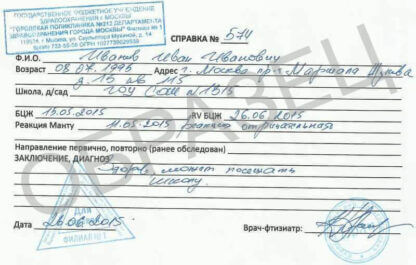 ГОСУДАРСТВЕННОЕ БЮДЖЕТНОЕ УЧРЕЖДЕНИЕ
ЗДРАВООХРАНЕНИЯ г. МОСКВЫ
"ГОРОДСКАЯ ПОЛИКЛИНИКА №212 ДЕПАРТАМЕНТА
ЗДРАВООХРАНЕНИЯ ГОРОДА МОСКВЫ" Филиал № 1
г. Москва, ул. Скульптора Мухиной, д. 14
СПРАВКА № 574
Ф.И.О. Иванов Иван Иванович
Возраст 08.07.1995 Адрес г. Москва пр-т Маршала Жукова
д. 15 кв 115
Школа, д/сад ГОУ СОШ №1515
БЦЖ 15.05.2015 RV БЦЖ 26.06.2015
Реакция Манту 11.05.2015 Реакция отрицательная
Направление первично, повторно (ранее обследован)
ЗАКЛЮЧЕНИЕ, ДИАГНОЗ
Здоров, может посещать
школу.
Дата 26.06.2015 Врач-фтизиатр:
ДЛЯ
ФИЛИАЛ № 1
ОБРАЗЕЦ